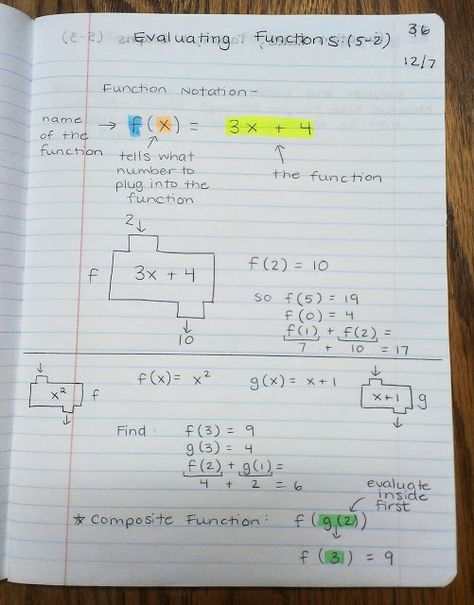 36
Evaluating Functions (5-2)
12/7
Function Notation -
name of the function → f(x) = 3x + 4
tells what number to plug into the function
the function
2↓
f 3x + 4
↓
10
f(2) = 10
so f(5) = 19
f(0) = 4
f(1) + f(2) =
7 + 10 = 17
x² f
f(x) = x²
g(x) = x + 1
x+1 g
Find: f(3) = 9
g(3) = 4
f(2) + g(1) =
4 + 2 = 6
evaluate inside first
* Composite Function: f(g(2))
f(3) = 9